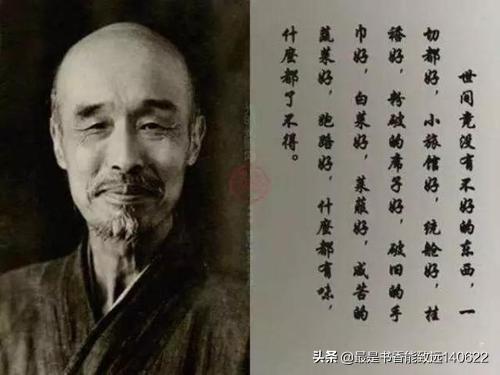 世间竟没有不好的东西，一
切都好，小旅馆好，统舱好，挂
褡好，粉破的席子好，破旧的手
巾好，白菜好，莱菔好，咸苦的
蔬菜好，跑路好，什麽都有味，
什麽都了不得。
头条 @最是书香能致远140622